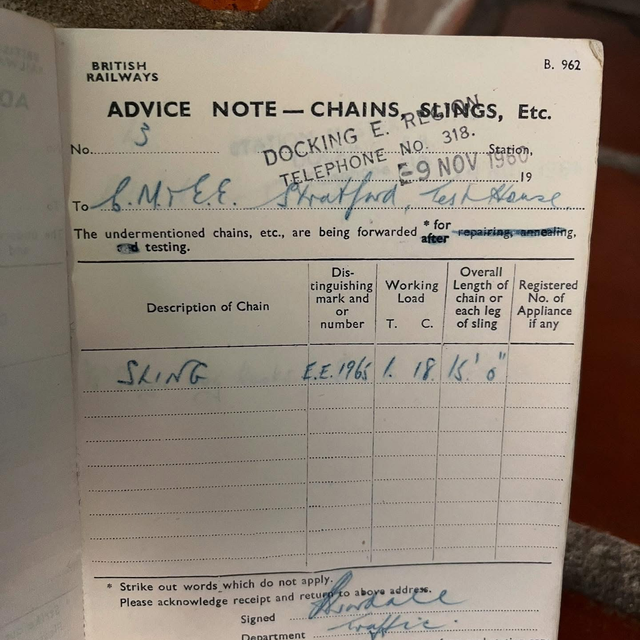 BRITISH
RAILWAYS
B. 962
ADVICE NOTE — CHAINS, SLINGS, Etc.
No. 3
DOCKING E. REGION
TELEPHONE NO. 318.
Station,
-9 NOV 1960
19
To C.M.&E.E. Stratford, Test House
The undermentioned chains, etc., are being forwarded * for
after repairing, annealing,
and testing.
Description of Chain
Dis-
tinguishing
mark and
or
number
Working
Load
T. C.
Overall
Length of
chain or
each leg
of sling
Registered
No. of
Appliance
if any
SLING E.E.1965 1. 18 15' 0"
* Strike out words which do not apply.
Please acknowledge receipt and return to above address.
Signed
Department Traffic.